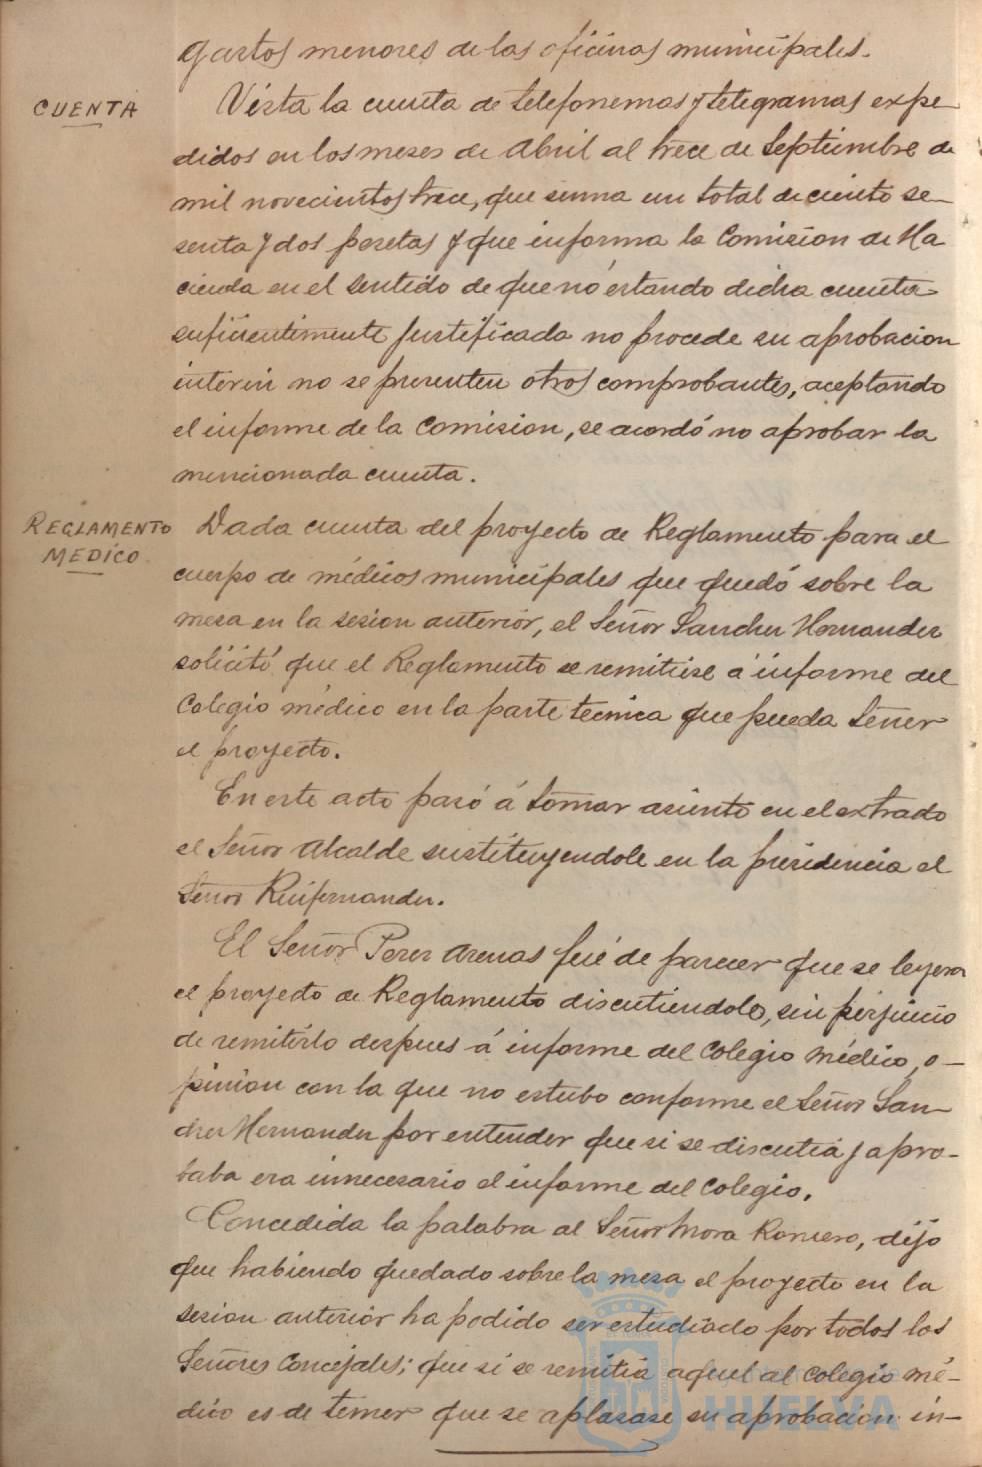 gastos menores de las oficinas municipales.
CUENTA
Vista la cuenta de telefonemas y telegramas expe-
didos en los meses de Abril al trece de Septiembre de
mil novecientos trece, que suma un total de ciento se-
senta y dos pesetas y que informa la Comision de Ha
cienda en el sentido de que nó estando dicha cuenta
suficientemente justificada no procede su aprobacion
interin no se presenten otros comprobantes, aceptando
el informe de la Comision, se acordó no aprobar la
mencionada cuenta.
REGLAMENTO
MEDICO
Dada cuenta del proyecto de Reglamento para el
cuerpo de médicos municipales que quedó sobre la
mesa en la sesion anterior, el Señor Sanchez Hernandez
solicitó que el Reglamento se remitiese á informe del
Colegio médico en la parte tecnica que pueda tener
el proyecto.
En este acto pasó á tomar asiento en el extrado
el Señor Alcalde sustituyendole en la presidencia el
Señor Ruifernandez.
El Señor Perez Arenas fué de parecer que se leyera
el proyecto de Reglamento discutiendolo, sin perjuicio
de remitirlo despues á informe del Colegio médico, o-
pinion con la que no estubo conforme el Señor San-
chez Hernandez por entender que si se discutia y apro-
baba era innecesario el informe del Colegio.
Concedida la palabra al Señor Mora Romero, dijo
que habiendo quedado sobre la mesa el proyecto en la
sesion anterior ha podido ser estudiado por todos los
Señores Concejales; que si se remitia aquel al Colegio mé-
dico es de temer que se aplazase su aprobacion in-
HUELVA